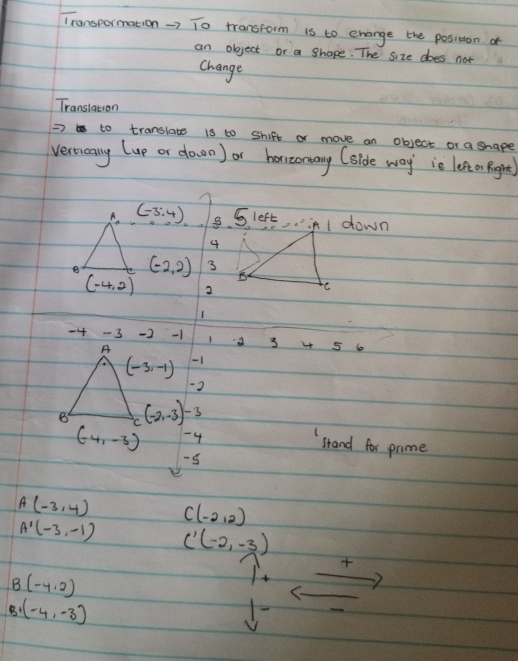 Transformation → To transform is to change the position of
an object or a shape. The size does not
Change
Translation
⇒ to translate is to shift or move an object or a shape
Vertically (up or down) or horizontally (side way ie left or Right)
A (-3,4) 5 5 left A 1 down
4
B C (-2,2) 3 B
(-4,2) 2 C
1
-4 -3 -2 -1 1 2 3 4 5 6
A -1
(-3,-1)
-2
B C (-2,-3) -3
(-4,-3) -4
' stand for prime
-5
A (-3,4) C(-2,2)
A'(-3,-1) C'(-2,-3)
+
+
B (-4,2) -
B'(-4,-3) -